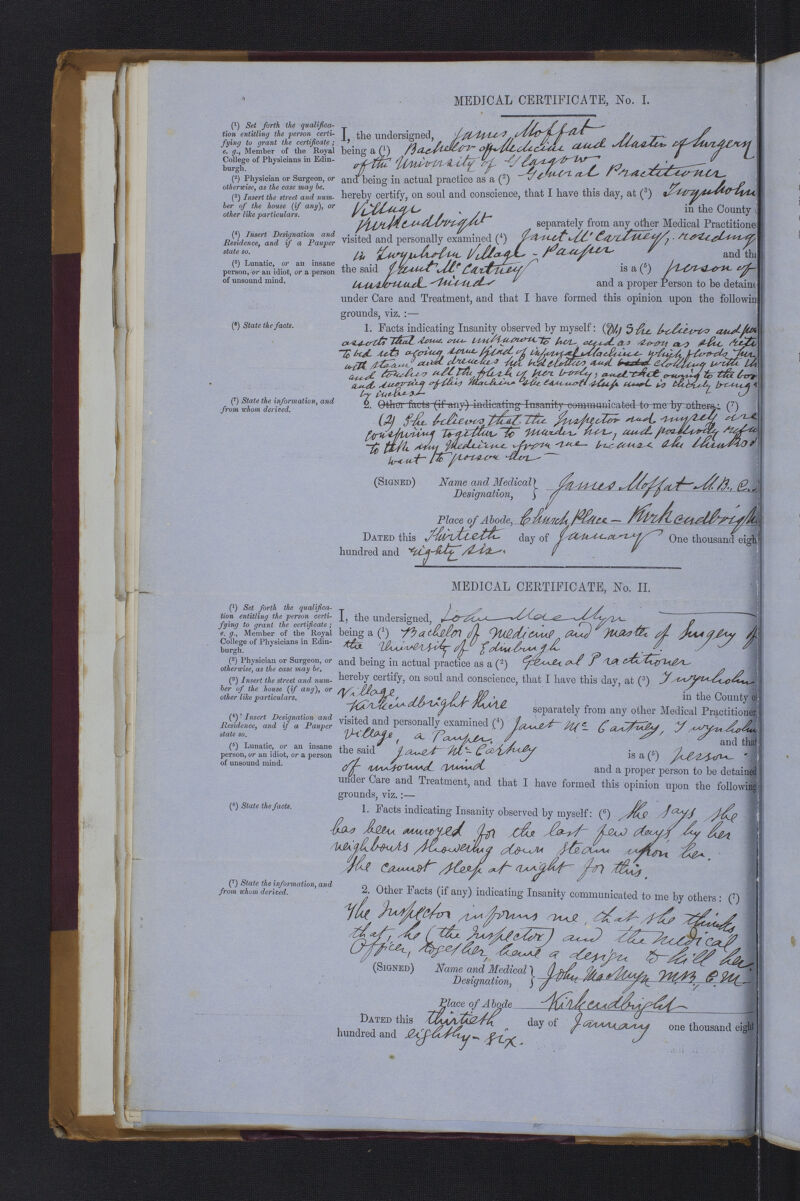 MEDICAL CERTIFICATE, No. I.
(1) Set forth the qualifica-
tion entitling the person certi-
fying to grant the certificate;
e. g., Member of the Royal
College of Physicians in Edin-
burgh.
(2) Physician or Surgeon, or
otherwise, as the case may be.
(3) Insert the street and num-
ber of the house (if any), or
other like particulars.
(4) Insert Designation and
Residence, and if a Pauper
state so.
(5) Lunatic, or an insane
person, or an idiot, or a person
of unsound mind.
(6) State the facts.
(7) State the information, and
from whom derived.
I, the undersigned, James Moffat
being a (1) Bachelor of Medicine and Master of Surgery
of the University of Glasgow
and being in actual practice as a (2) General Practitioner
hereby certify, on soul and conscience, that I have this day, at (3) Twynholm
Village in the County
Kirkcudbright separately from any other Medical Practitione
visited and personally examined (4) Janet McCartney, residing
in Twynholm Village - Pauper and th
the said Janet McCartney is a (5) person of
unsound mind and a proper Person to be detaine
under Care and Treatment, and that I have formed this opinion upon the followin
grounds, viz. :—
1. Facts indicating Insanity observed by myself: (6) (1) She believes and
asserts that some one unknown to her and as soon as she
to bed sets agoing some kind of infernal Machine which floods her
with steam and drenches her bedclothes and clothing with
and touches all the flesh of her body; and that owing to the
and of this Machine she cannot sleep and is being
by inches
2. Other facts (if any) indicating Insanity communicated to me by others: (7)
(2) She believes that the Inspector and myself are
conspiring together to murder her, and positively
to take any Medicine from me because she thinks
want to poison her —
(SIGNED) Name and Medical Designation, James Moffat M.B., C.
Place of Abode, Church Place — Kirkcudbrigh
DATED this Thirtieth day of January One thousand eigh
hundred and eighty six.
MEDICAL CERTIFICATE, No. II.
(1) Set forth the qualifica-
tion entitling the person certi-
fying to grant the certificate;
e. g., Member of the Royal
College of Physicians in Edin-
burgh.
(2) Physician or Surgeon, or
otherwise, as the case may be.
(3) Insert the street and num-
ber of the house (if any), or
other like particulars.
(4) Insert Designation and
Residence, and if a Pauper
state so.
(5) Lunatic, or an insane
person, or an idiot, or a person
of unsound mind.
(6) State the facts.
(7) State the information, and
from whom derived.
I, the undersigned, John MacMyn
being a (1) Bachelor of Medicine and Master of Surgery of
the University of Edinburgh
and being in actual practice as a (2) General Practitioner
hereby certify, on soul and conscience, that I have this day, at (3) Twynholm
Village in the County o
Kirkcudbright Shire separately from any other Medical Practitioner
visited and personally examined (4) Janet McCartney, Twynholm
Village, a Pauper and that
the said Janet McCartney is a (5) person
of unsound mind and a proper person to be detained
under Care and Treatment, and that I have formed this opinion upon the following
grounds, viz. :—
1. Facts indicating Insanity observed by myself: (6) She says she
has been annoyed for the last few days by her
neighbours showering down steam upon her.
She cannot sleep at night for this.
2. Other Facts (if any) indicating Insanity communicated to me by others: (7)
The Inspector informs me that she thinks
that, he (the Inspector) and the Medical
Officer, together, have a design to kill her.
(SIGNED) Name and Medical Designation, John MacMyn M.B., C.M
Place of Abode Kirkcudbright
DATED this thirtieth day of January one thousand eight
hundred and eighthy-six.